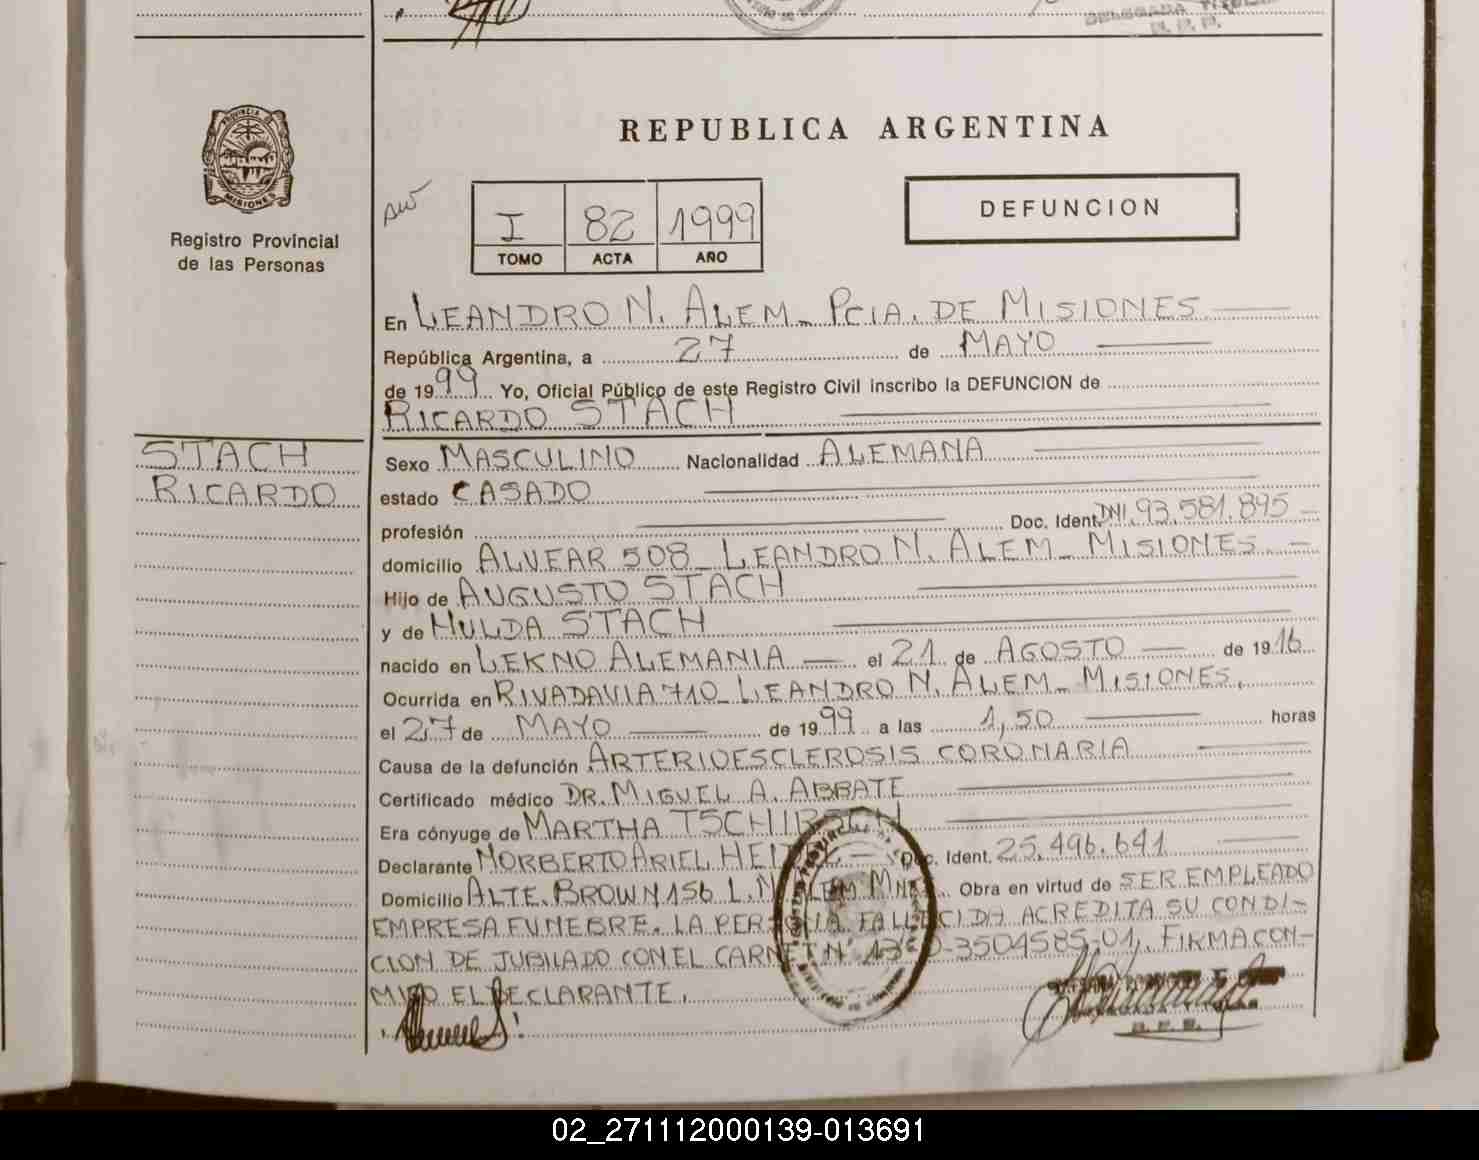 REPUBLICA ARGENTINA
PROVINCIA DE
MISIONES
Registro Provincial
de las Personas
I 82 1999
TOMO ACTA AÑO
DEFUNCION
En LEANDRO N. ALEM - PCIA. DE MISIONES
República Argentina, a 27 de MAYO
de 1999 Yo, Oficial Público de este Registro Civil inscribo la DEFUNCION de
RICARDO STACH
STACH
RICARDO
Sexo MASCULINO Nacionalidad ALEMANA
estado CASADO
profesión Doc. Ident. DNI. 93.581.895 -
domicilio ALVEAR 508 - LEANDRO N. ALEM - MISIONES -
Hijo de AUGUSTO STACH
y de HULDA STACH
nacido en LEKNO ALEMANIA - el 21 de AGOSTO - de 1916
Ocurrida en RIVADAVIA 710 - LEANDRO N. ALEM - MISIONES.
el 27 de MAYO de 1999 a las 1,50 horas
Causa de la defunción ARTERIOESCLEROSIS CORONARIA
Certificado médico DR. MIGUEL A. ABBATE
Era cónyuge de MARTHA TSCHIRSCH
Declarante NORBERTO ARIEL Doc. Ident. 25.496.641
Domicilio ALTE. BROWN 156 L.N. ALEM MNES. Obra en virtud de SER EMPLEADO
EMPRESA FUNEBRE. LA PERSONA FALLECIDA ACREDITA SU CONDI-
CION DE JUBILADO CON EL CARNET Nº -3504585-01. FIRMA CON-
MIGO EL DECLARANTE.
02_271112000139-013691